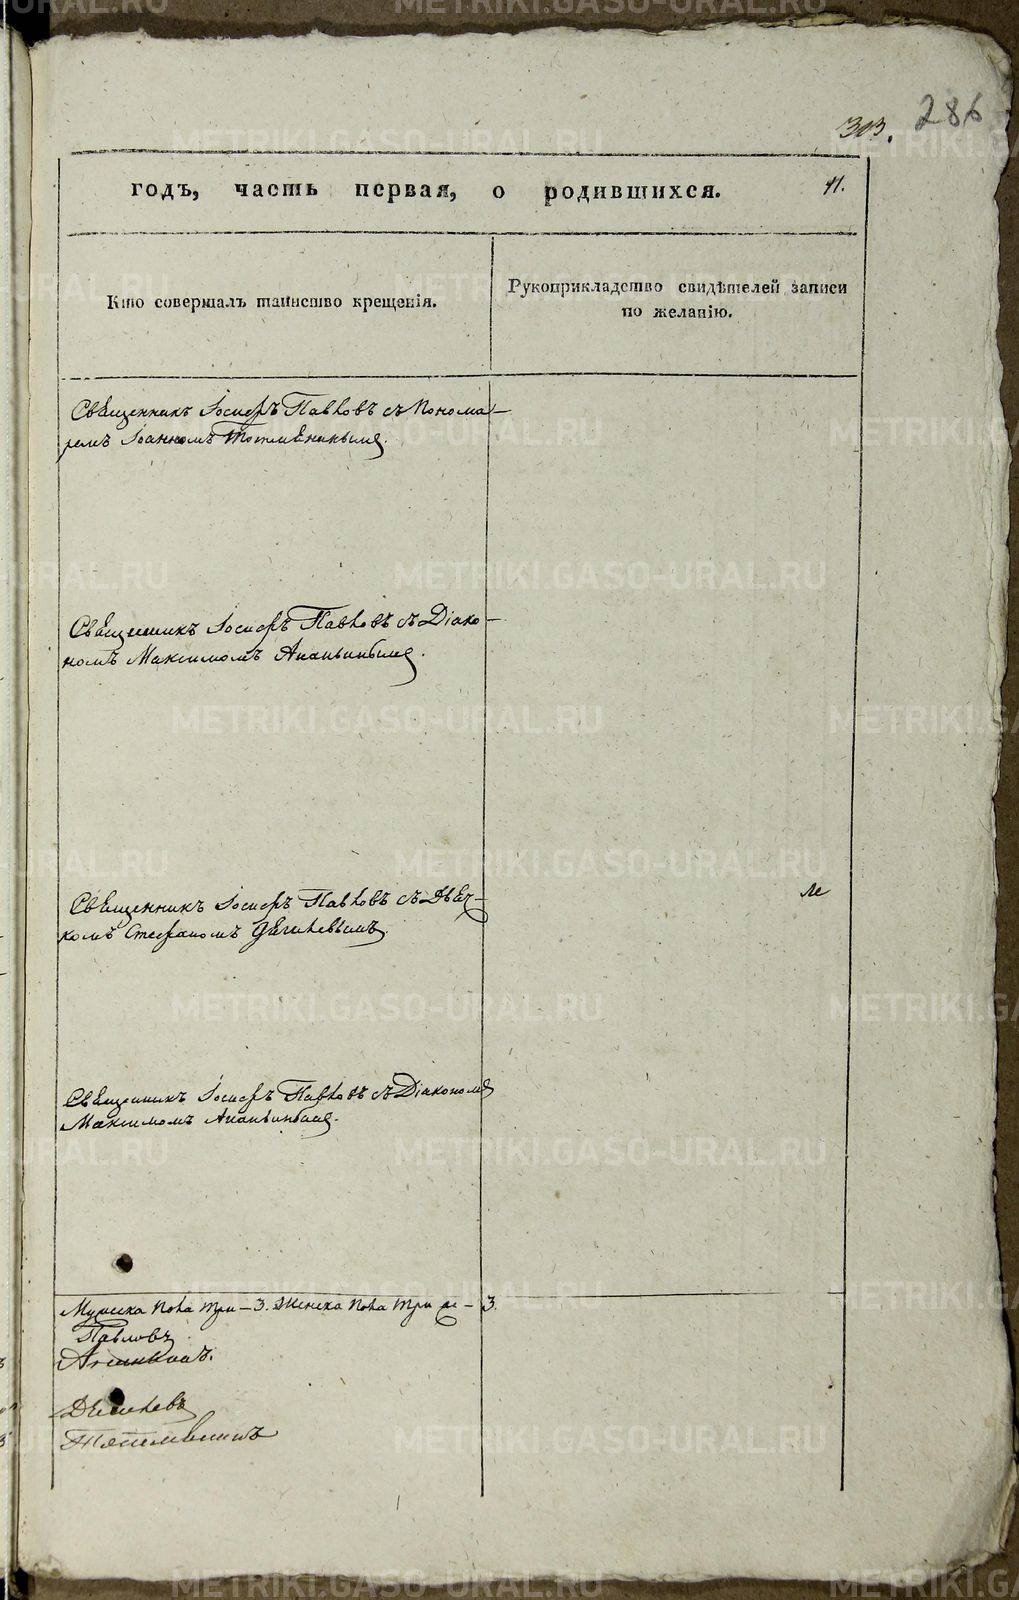 286
303.
годъ, часть первая, о родившихся. 41.
Кто совершалъ таинство крещенія.
Рукоприкладство свидѣтелей записи
по желанію.
Священникъ Іосифъ Павловъ съ Понома-
ремъ Іоанномъ
Священникъ Іосифъ Павловъ съ Діако-
номъ Максимомъ Ананьинымъ.
Священникъ Іосифъ Павловъ съ Дьяч-
комъ Стефаномъ
Священникъ Іосифъ Павловъ съ Діакономъ
Максимомъ Ананьинымъ.
Мужеска пола три – 3. Женска пола три – 3.
Павловъ
Ананьинъ.
METRIKI.GASO-URAL.RU